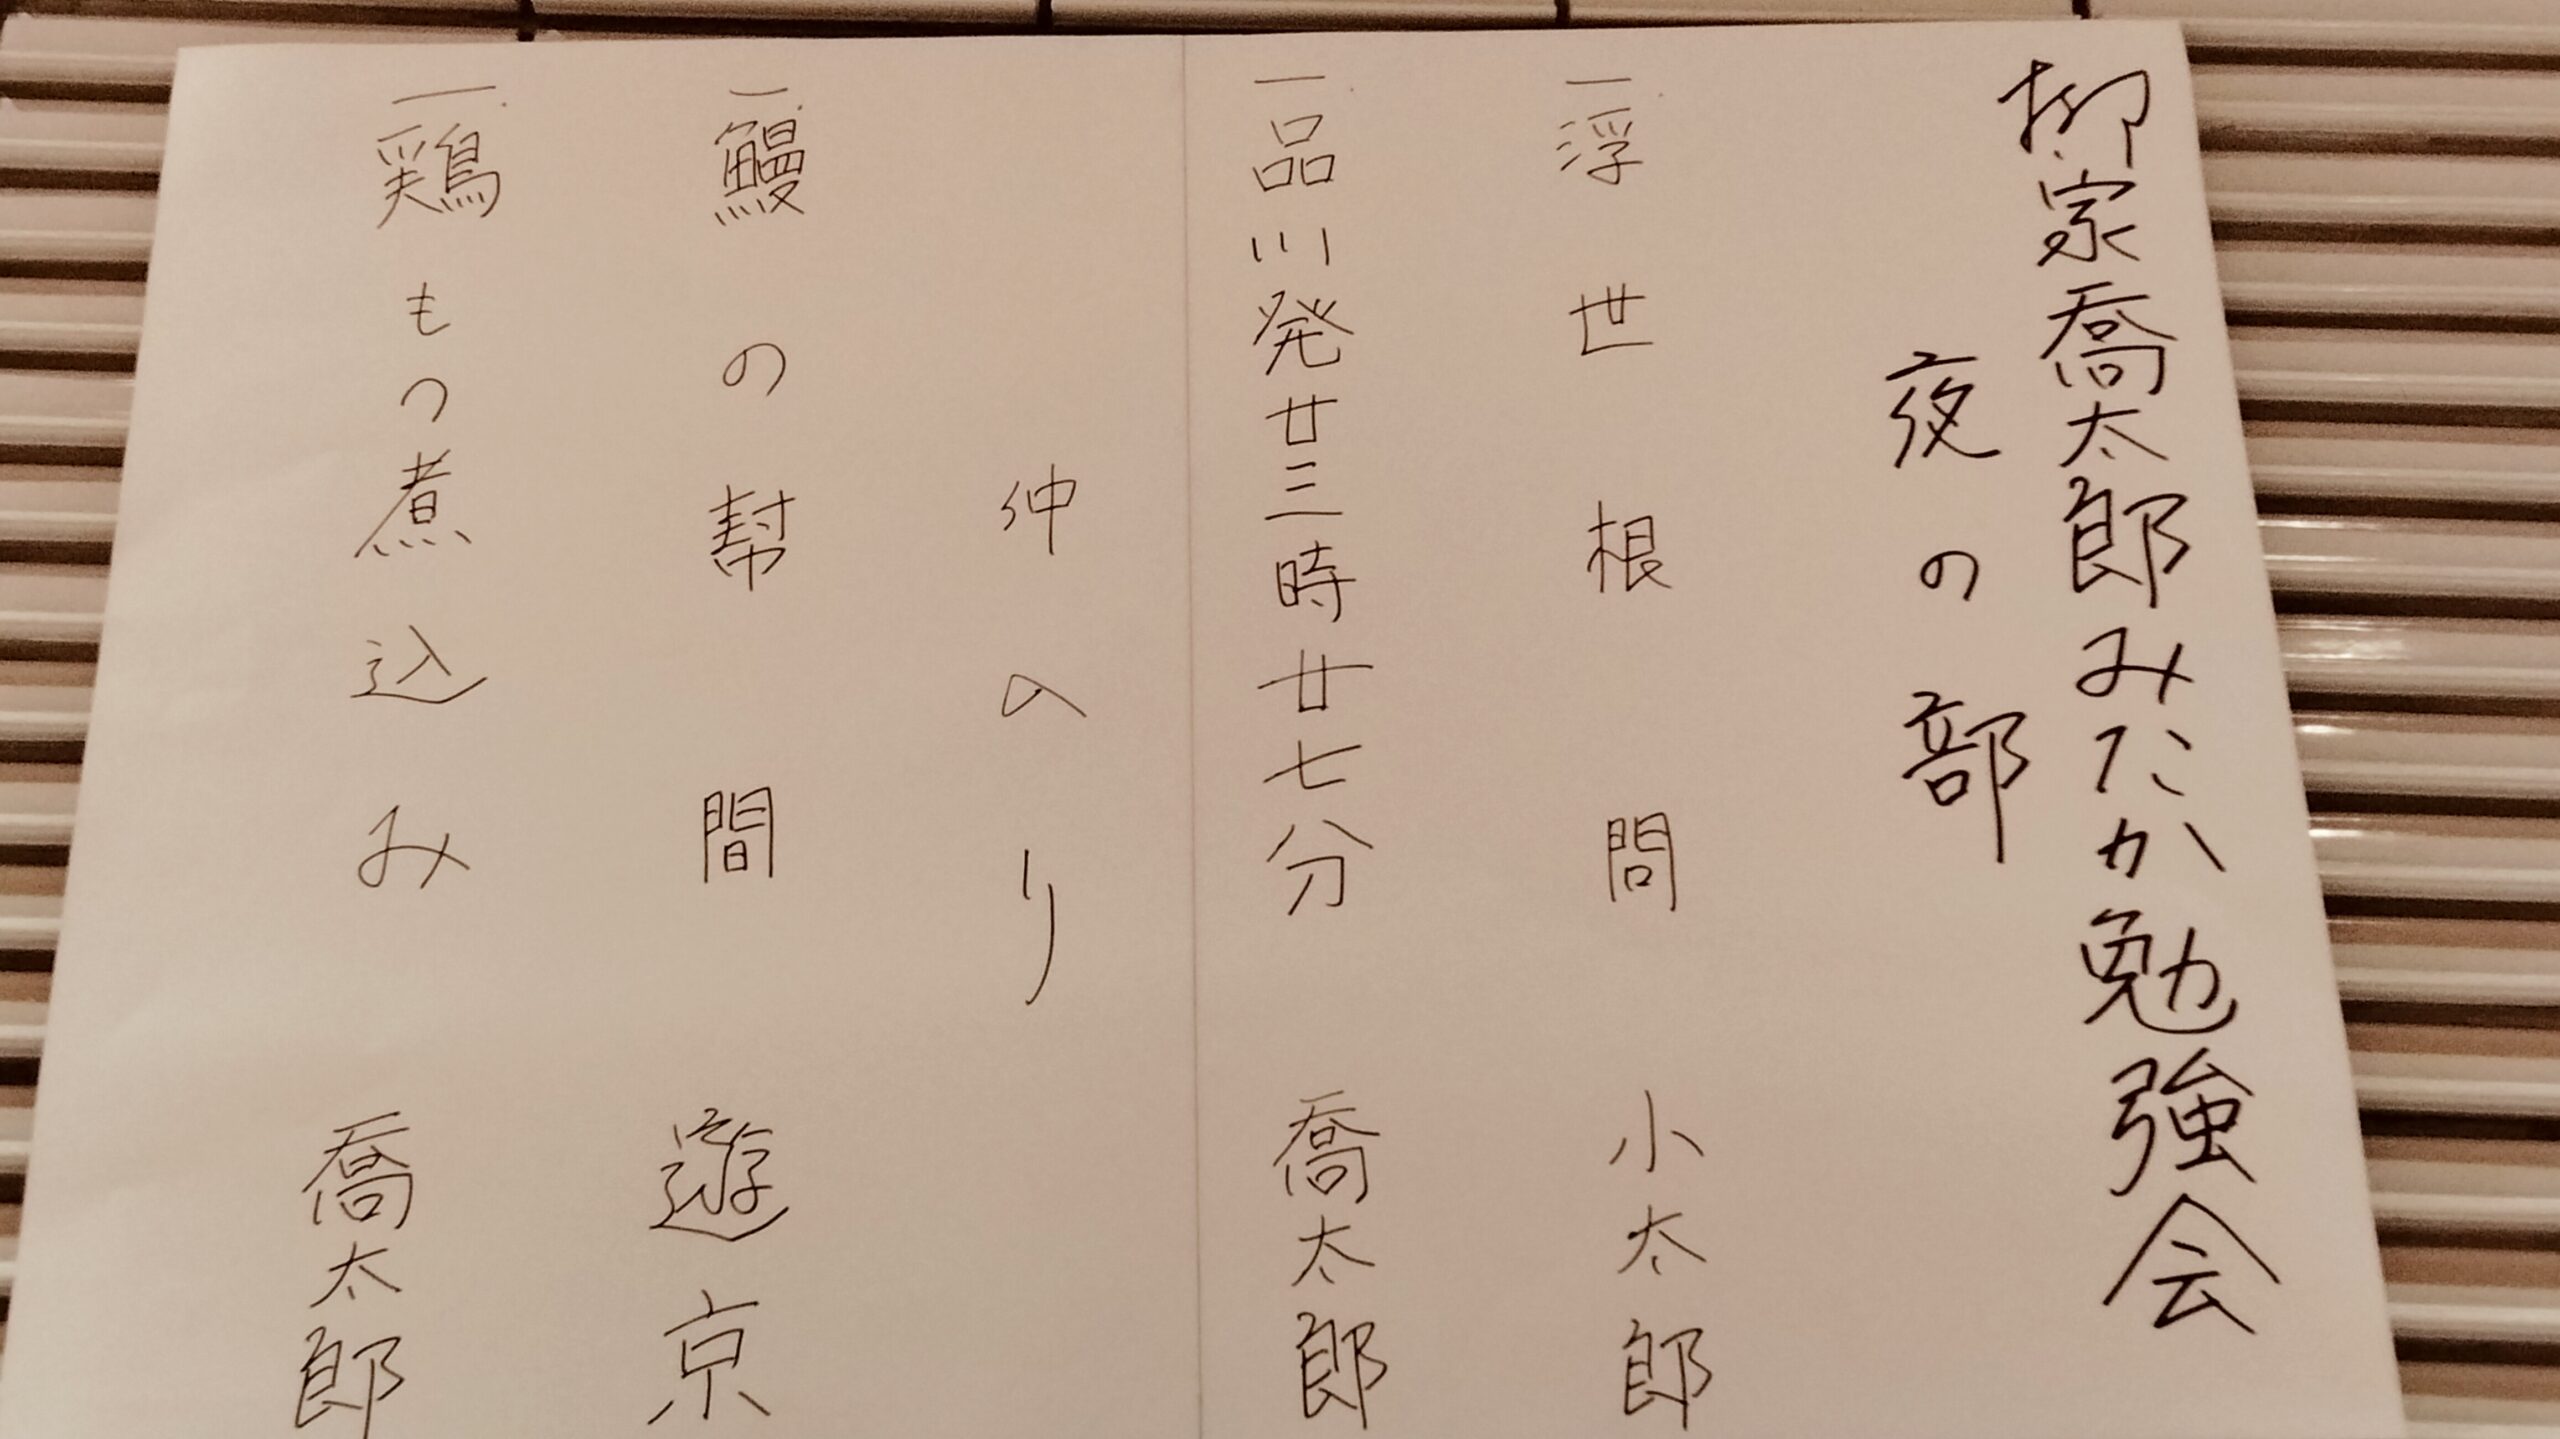 柳家喬太郎みたか勉強会
夜の部
一.浮世根問 小太郎
一.品川発廿三時廿七分 喬太郎
仲入り
一.鰻の幇間 遊京
一.鶏もつ煮込み 喬太郎